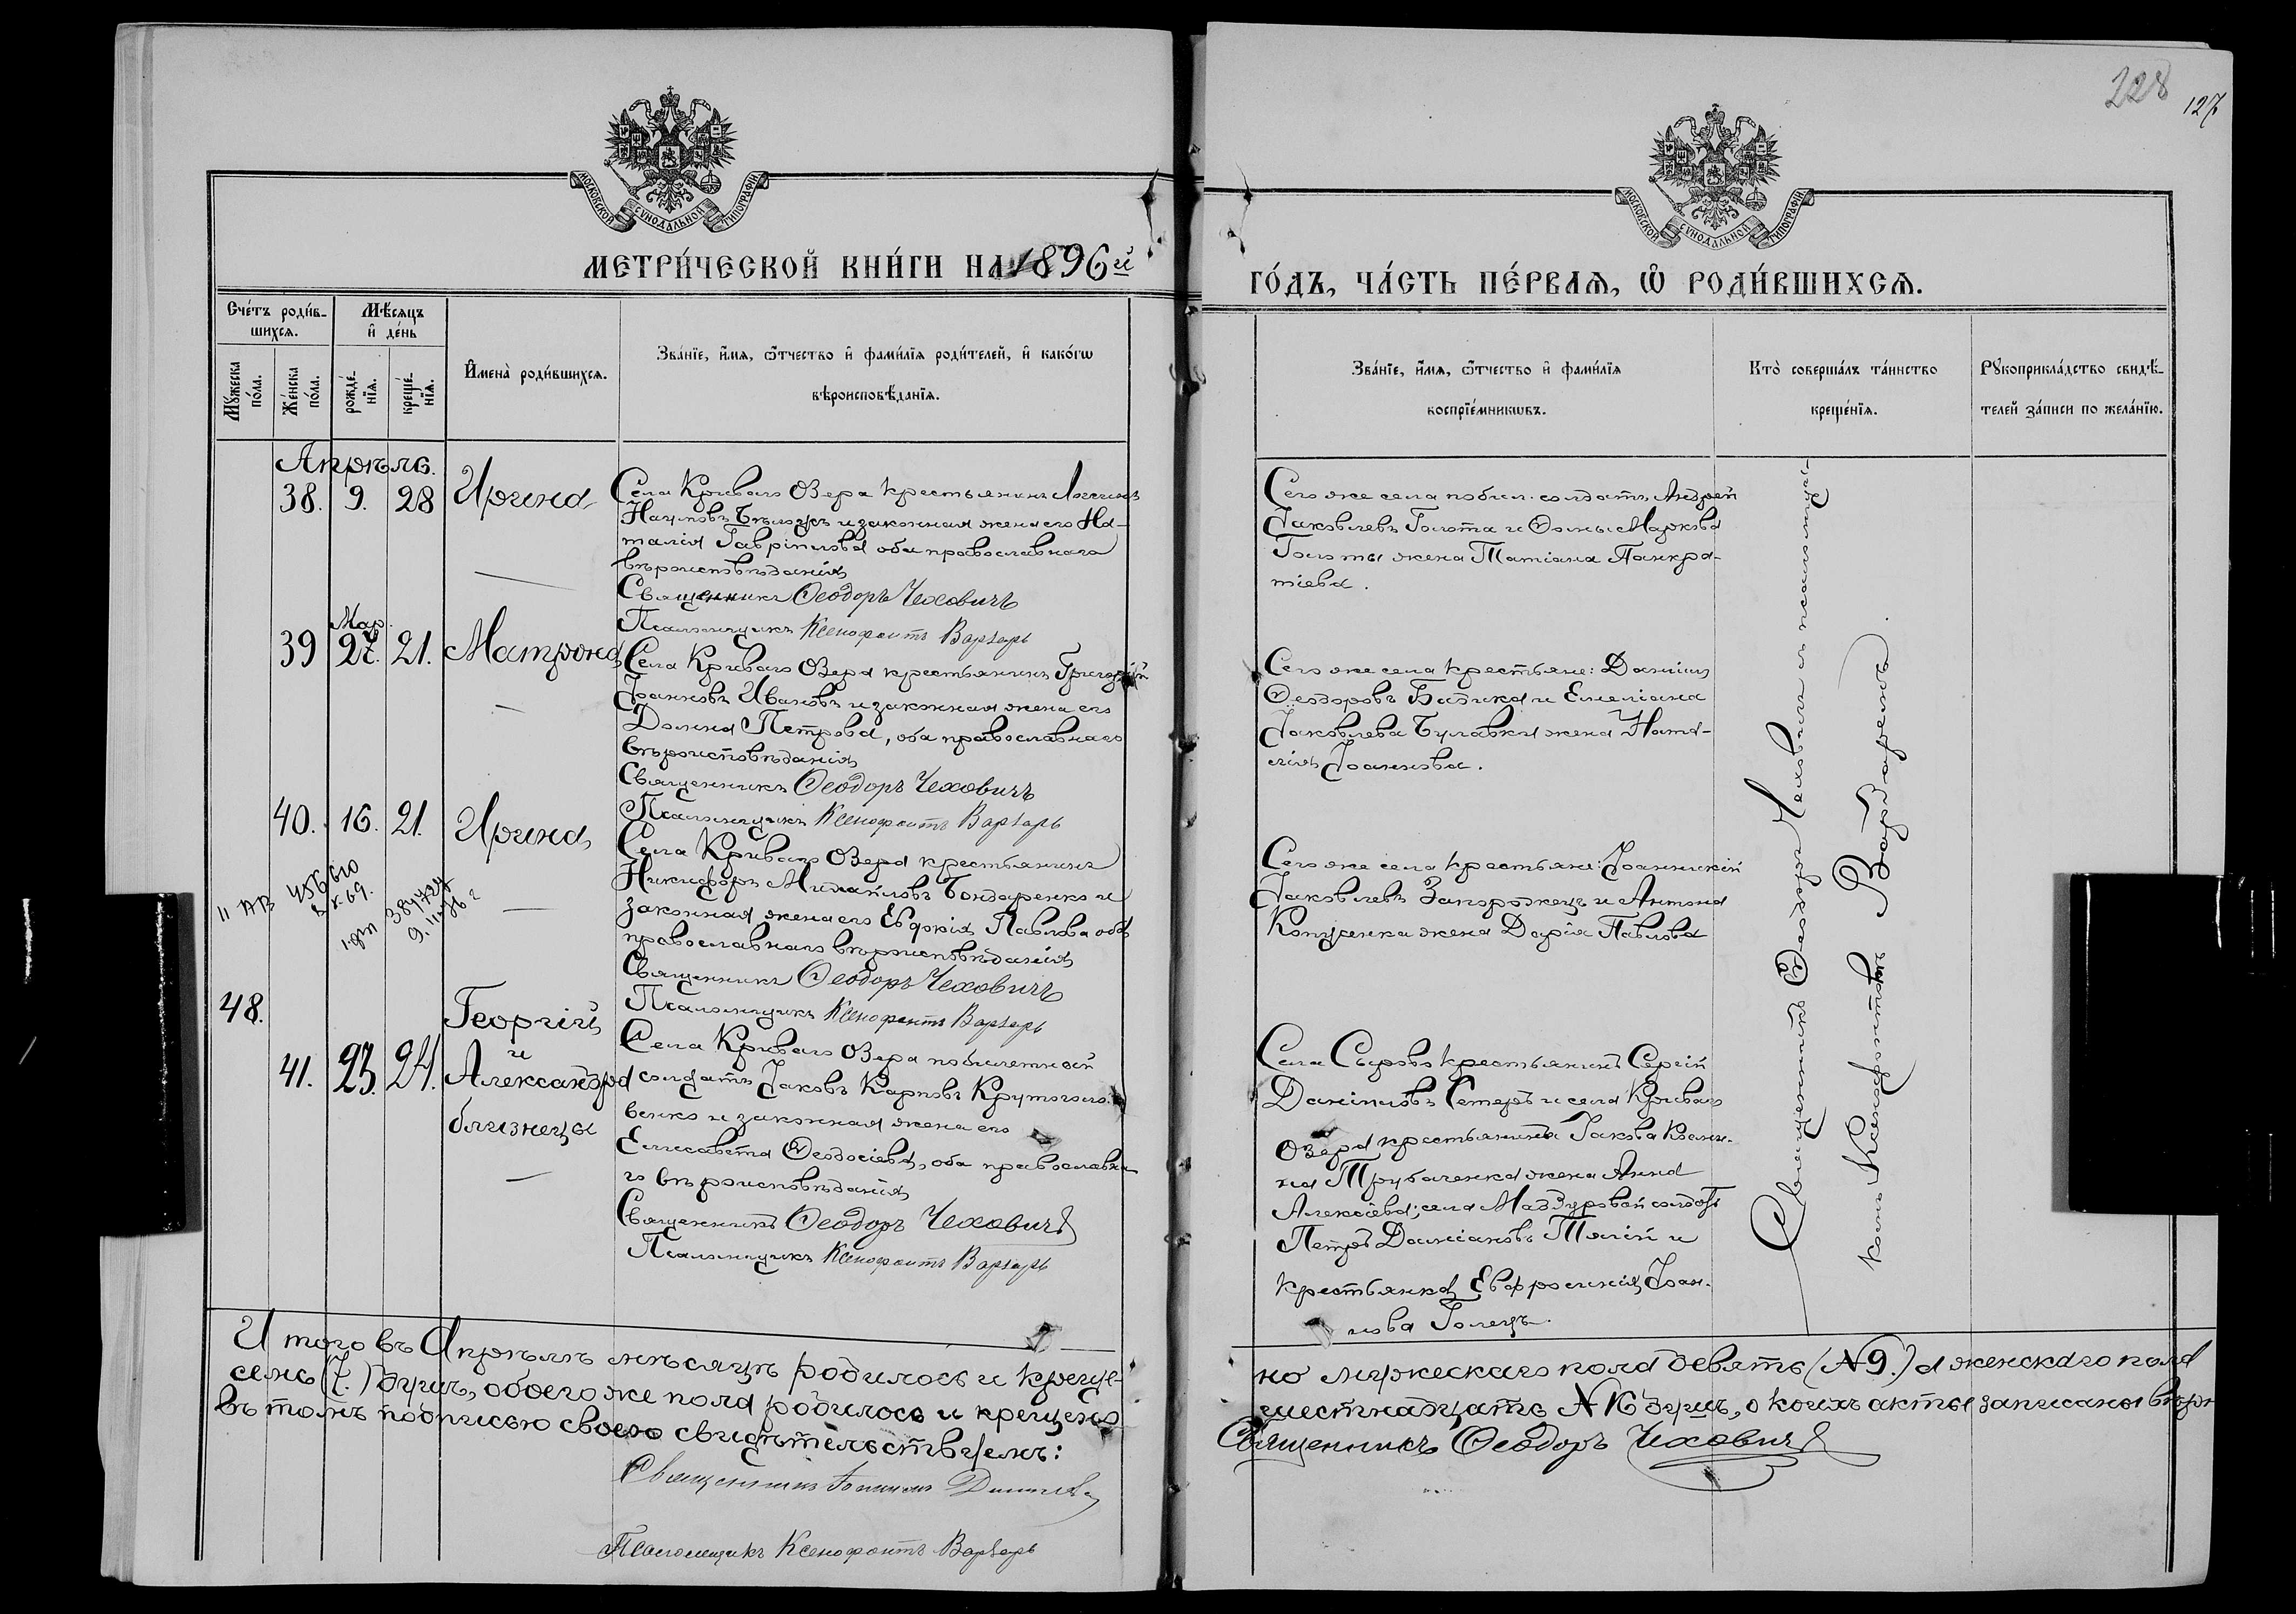 228
127
МОСКОВСКОЙ СѴНОДАЛЬНОЙ ТИПОГРАФІИ
МОСКОВСКОЙ СѴНОДАЛЬНОЙ ТИПОГРАФІИ
МЕТРИ́ЧЕСКОЙ КНИ́ГИ НА 1896й
ГО́ДЪ, ЧА́СТЬ ПЕ́РВАѦ, Ѡ РОДИ́ВШИХСѦ.
Сче́тъ роди́в-
шихсѧ.
Мѣ́сѧцъ
и҆ де́нь
Мꙋ́жеска
по́ла.
Же́нска
по́ла.
рожде́-
нїѧ.
креще́-
нїѧ.
И҆мена̀ роди́вшихсѧ.
Зва́нїе, и҆́мѧ, ѻ҆́тчество и҆ фами́лїѧ роди́телей, и҆ како́гѡ
вѣроисповѣ́данїѧ.
Зва́нїе, и҆́мѧ, ѻ҆́тчество и҆ фами́лїѧ
воспрїе́мникѡвъ.
Кто̀ соверша́лъ та́инство
креще́нїѧ.
Рꙋкоприкла́дство свидѣ́-
телей за́писи по жела́нїю.
Апрѣль.
38. 9. 28 Ирина
Села Криваго Озера крестьянинъ Логгинъ
Наумовъ Бѣлоусъ и законная жена его На-
талія Гавріилова оба православнаго
вѣроисповѣданія
Священникъ Ѳеодоръ Чеховичъ
Псаломщикъ Ксенофонтъ Варзарь
Сего же села побил. солдатъ Андрей
Іаковлевъ Голота и Ѳомы Маркова
Голоты жена Татіана Панкра-
тіева.
Мар.
39 27. 21. Матрона
Села Криваго Озера крестьянинъ Григорій
Іоанновъ Ивановъ и законная жена его
Домна Петрова, оба православнаго
вѣроисповѣданія
Священникъ Ѳеодоръ Чеховичъ
Псаломщикъ Ксенофонтъ Варзарь
Сего же села крестьяне: Даніилъ
Ѳеодоровъ Бадика и Емеліана
Іаковлева Булавки жена Ната-
лія Іоаннова.
40. 16. 21. Ирина
Села Криваго Озера крестьянинъ
Никифоръ Михайловъ Бондаренко и
законная жена его Евфимія Павлова оба
православнаго вѣроисповѣданія
Священникъ Ѳеодоръ Чеховичъ
Псаломщикъ Ксенофонтъ Варзарь
Сего же села крестьяне: Іоанникій
Іаковлевъ Запорожецъ и Антона
жена Дарія Павлова
II АВ 456610
384724
48.
Георгій
и
41. 23. 24. Александра
близнецы
Села Криваго Озера побилетный
солдатъ Іаковъ Карповъ Крутоголо-
венко и законная жена его
Елисавета Ѳеодосіева, оба православна
го вѣроисповѣданія
Священникъ Ѳеодоръ Чеховичъ
Псаломщикъ Ксенофонтъ Варзарь
Села Сырово крестьянинъ Сергій
Даніиловъ и села Криваго
Озера крестьянина Іакова
Трубаченка жена Анна
Алексіева; села Маздуровой солдатъ
Петръ Даміановъ и
крестьянка Евфросинія Іоан-
нова Голецъ.
Священникъ Ѳеодоръ Чеховичъ съ псаломщи-
комъ Ксенофонтомъ Варзаремъ.
Итого въ Апрѣлѣ мѣсяцѣ родилось и креще-
но мужескаго пола девять (№ 9.) а женскаго пола
семь (7.) душъ, обоего же пола родилось и крещено
шестнадцать № 16 душъ, о коихъ акты записаны вѣрн
въ томъ подписью своею свидѣтельствуемъ:
Священникъ Ѳеодоръ Чеховичъ
Священникъ
Псаломщикъ Ксенофонтъ Варзарь